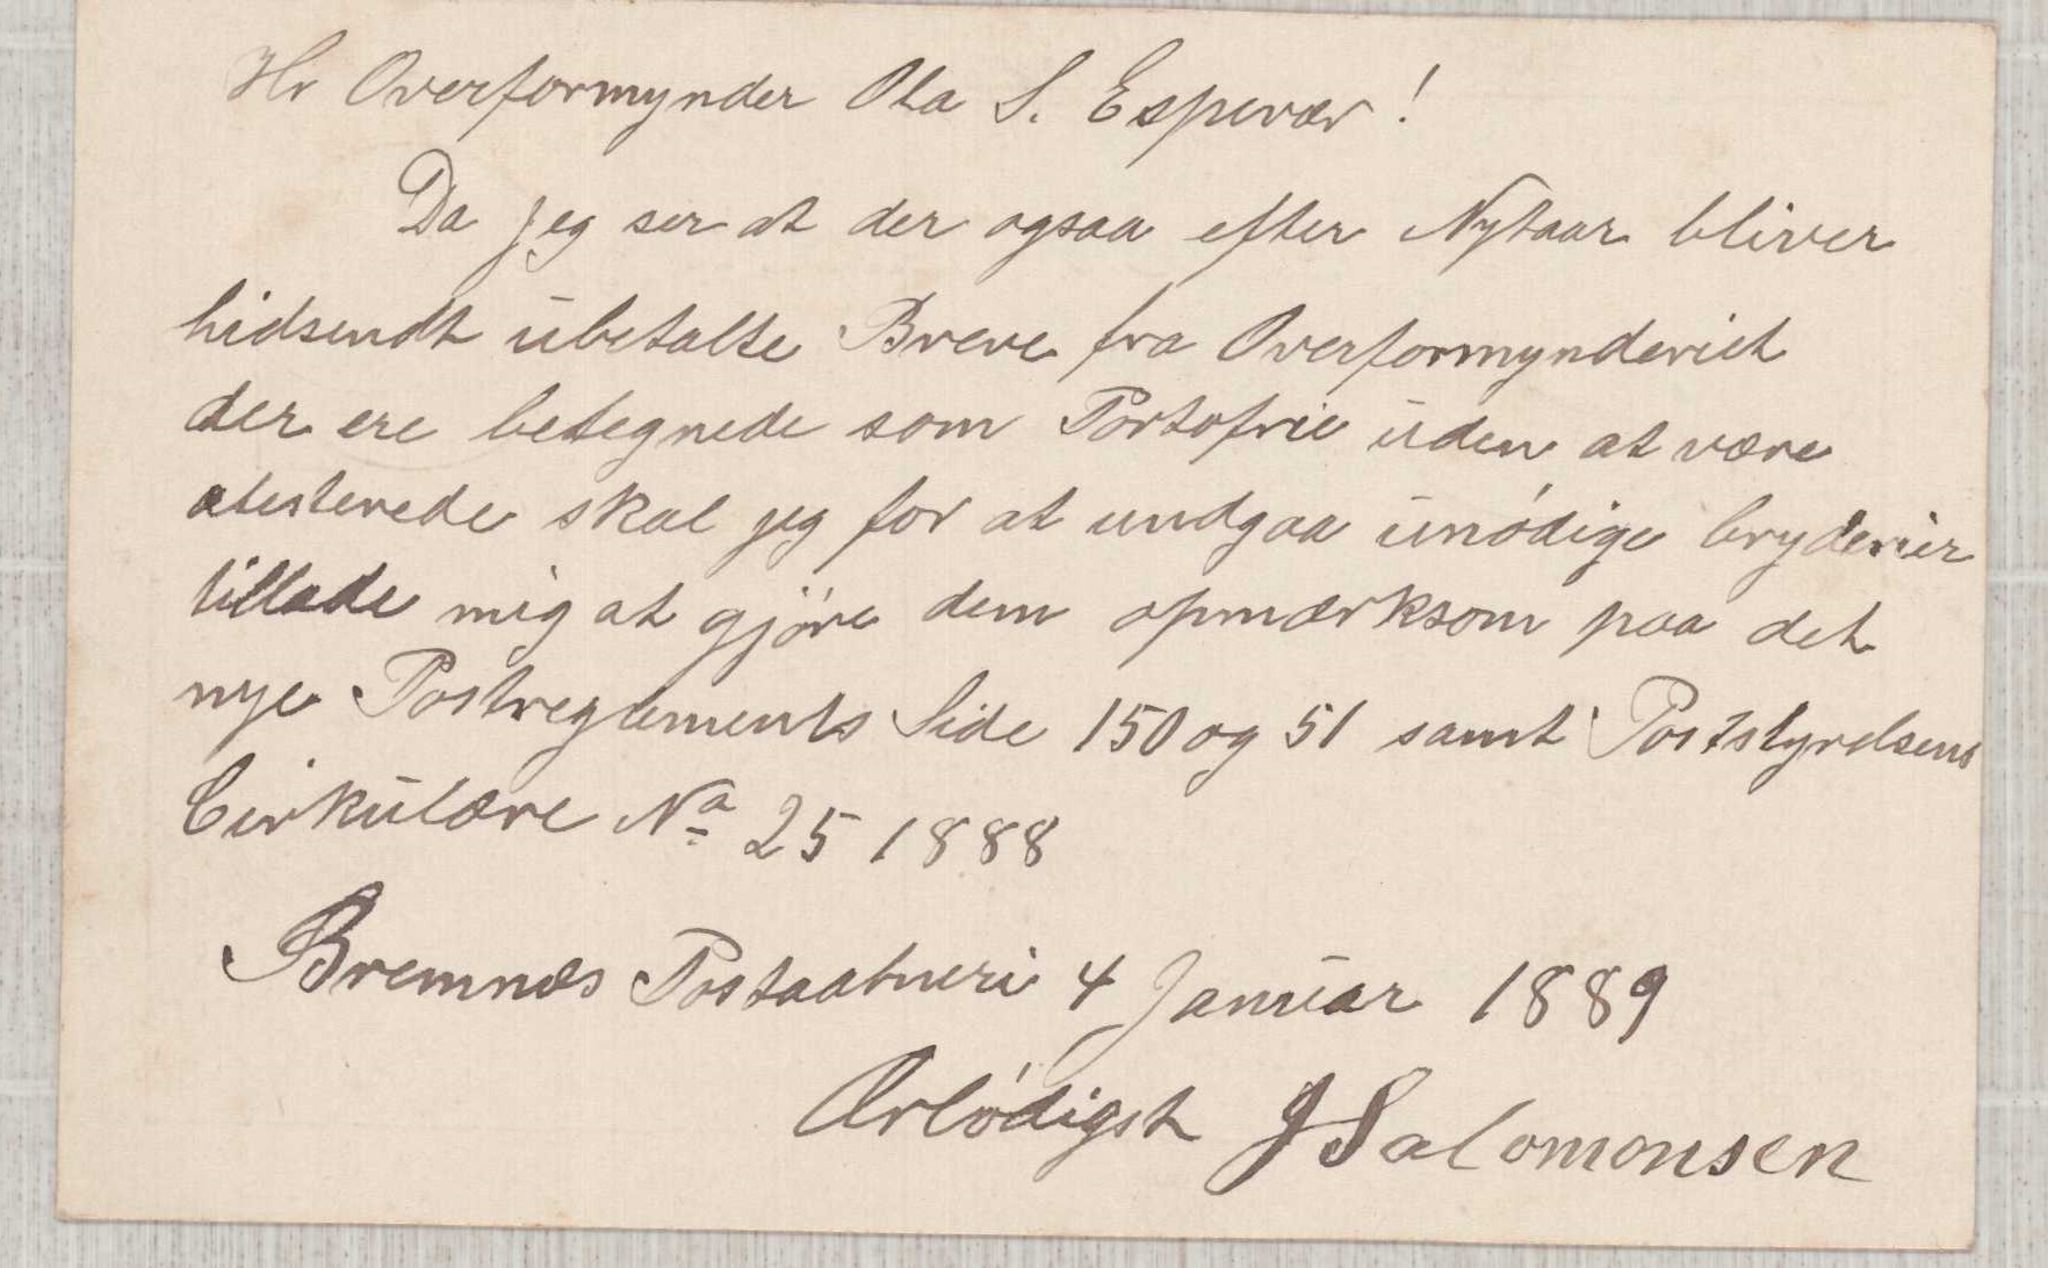 Hr Overformynder Ola S. Espevær!
Da jeg ser at der ogsaa efter Nytaar bliver
hidsendt ubetalte Breve fra Overformynderiet
der ere betegnede som Portofrie uden at være
atesterede skal jeg for at undgaa unódige bryderier
tillade mig at gjöre dem opmærksom paa det
nye Postreglements Side 150 og 51 samt Poststyrelsens
Cirkulære No 25 1888
Bremnæs Postaabneri 4 Januar 1889
Ærbódigst J Salomonsen